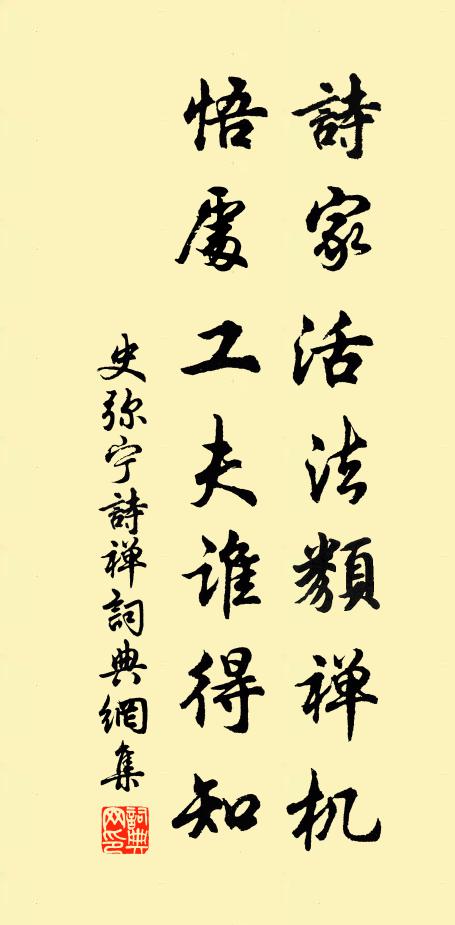 詩家活法類禅机
悟處工夫誰得知
史弥宁詩禅詞典網集
詞典網印